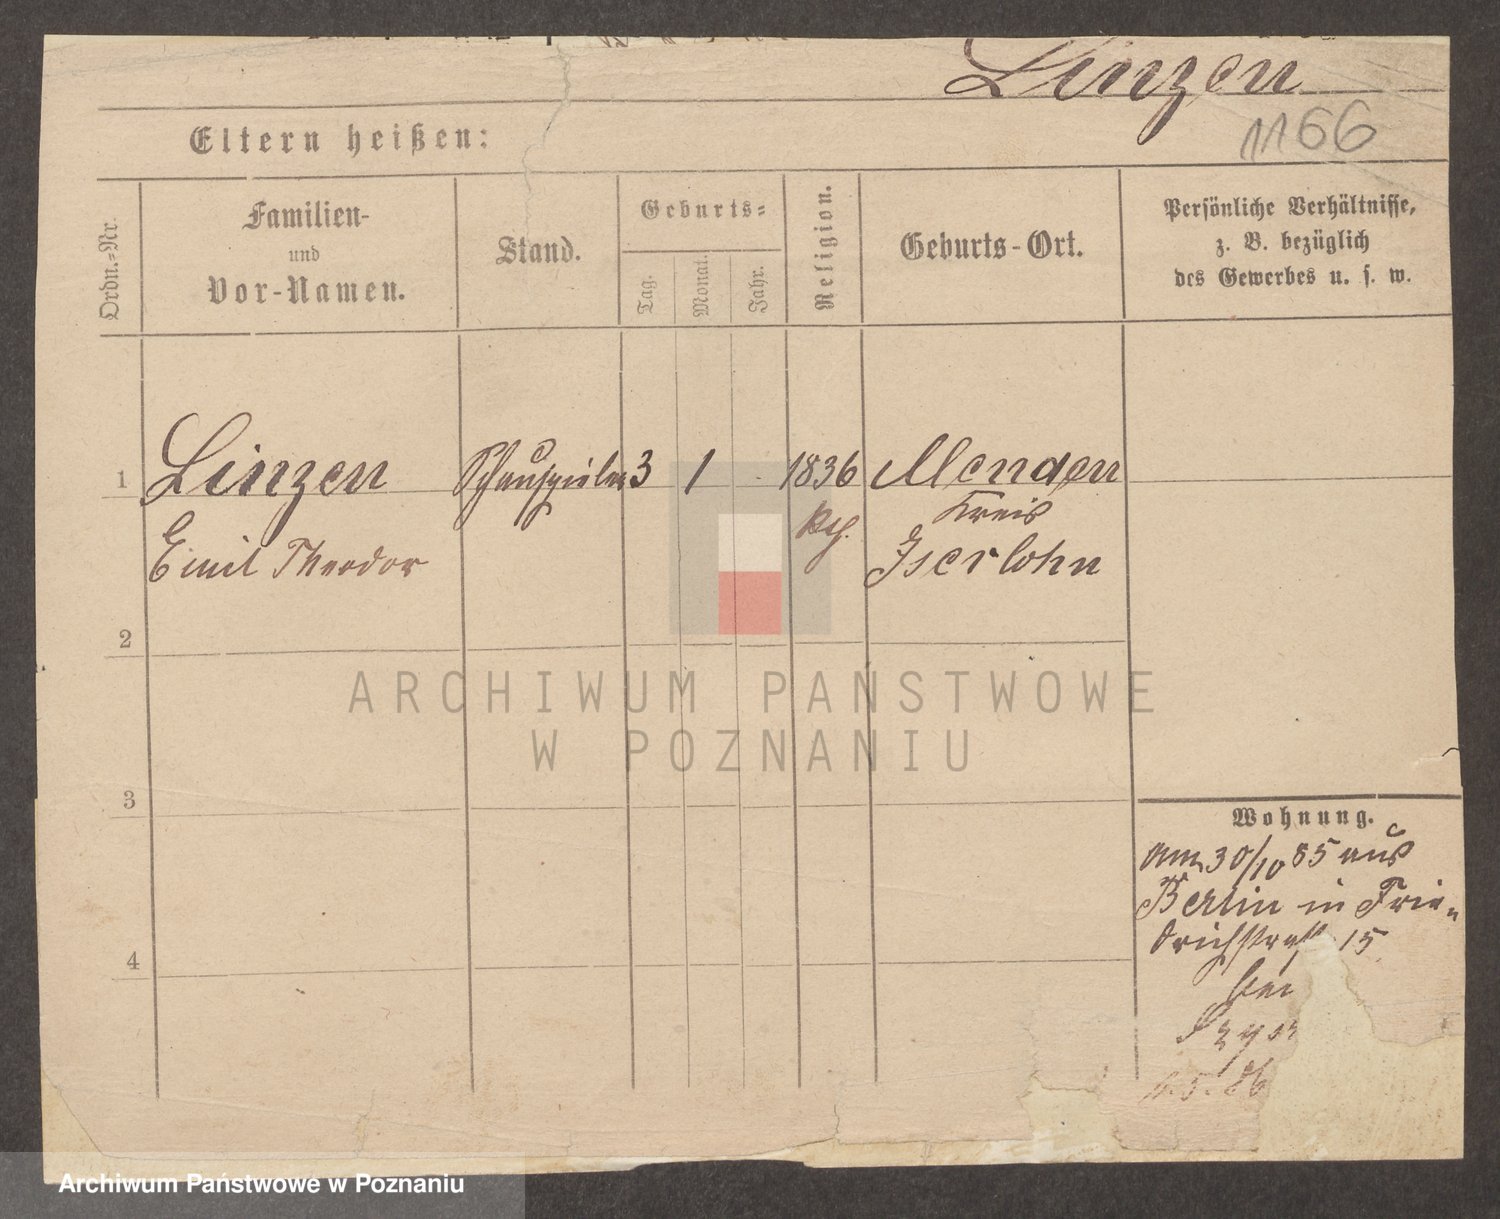 Linzen
1166
Eltern heißen:
Ordn.-Nr.
Familien-
und
Vor-Namen.
Stand.
Geburts-
Tag.
Monat.
Jahr.
Religion.
Geburts-Ort.
Persönliche Verhältnisse,
z. B. bezüglich
des Gewerbes u. s. w.
1 Linzen Schauspieler 3 1 1836 Menden
Kreis
Emil Theodor Iserlohn
2
3
4
Wohnung.
am 30/10 85 aus
Berlin in Frie-
drichstraße 15
bei
ARCHIWUM PAŃSTWOWE
W POZNANIU
Archiwum Państwowe w Poznaniu